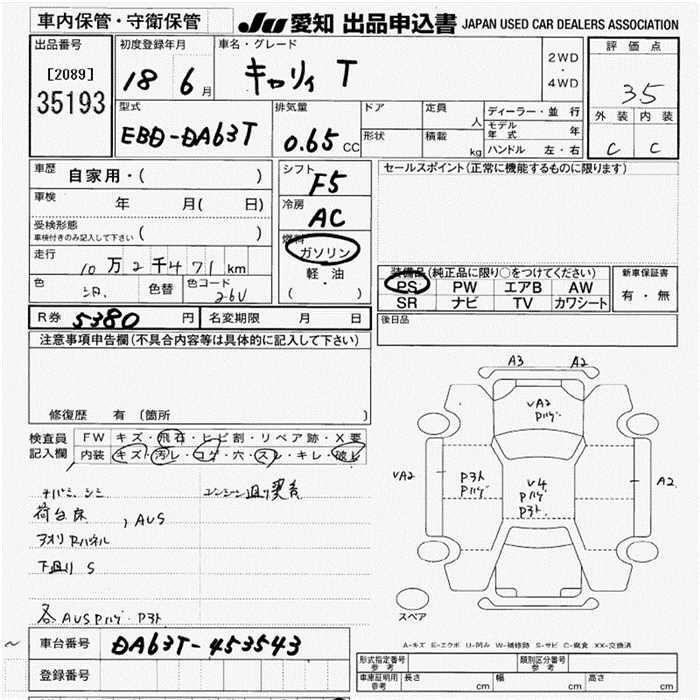 車内保管・守衛保管 JU 愛知 出品申込書 JAPAN USED CAR DEALERS ASSOCIATION
出品番号 [2089] 35193
初度登録年月 18 6月
車名・グレード キャリィ T
2WD・4WD
評価点 3.5
外装 内装
C C
型式 EBD-DA63T
排気量 0.65 CC
ドア 定員 人
形状 積載 kg
ディーラー・並行
モデル年式 年
ハンドル 左・右
車歴 自家用・( )
車検 年 月( 日)
受検形態 車検付きのみ記入して下さい ( )
走行 10万2千471km
色 シロ 色替 色コード 26U
シフト F5
冷房 AC
燃料 ガソリン
軽・油
( ・ )
セールスポイント(正常に機能するものに限ります)
装備品(純正品に限り○をつけてください)
PS PW エアB AW
SR ナビ TV カワシート
新車保証書
有・無
R券 5380円 名変期限 月 日
後日品
注意事項申告欄(不具合内容等は具体的に記入して下さい)
修復歴 有 (箇所 )
検査員記入欄
FW キズ・飛石・ヒビ割・リペア跡・X要
内装 キズ・汚レ・コゲ・穴・スレ・キレ・破レ
荷台床 , AUS
アオリ Pハネル
下廻り S
各 AUS Pハゲ・Pヨト
A3 A2
VA2 Pハゲ
VA2 Pヨト Pハゲ V4 Pハゲ Pヨト A2
スペア
A-キズ E-エクボ U-凹み W-補修跡 S-サビ C-腐食 XX-交換済
車台番号 DA63T-453543
登録番号
形式指定番号 参考 類別区分番号 参考
車庫証明用 参考 長さ cm 幅 cm 高さ cm